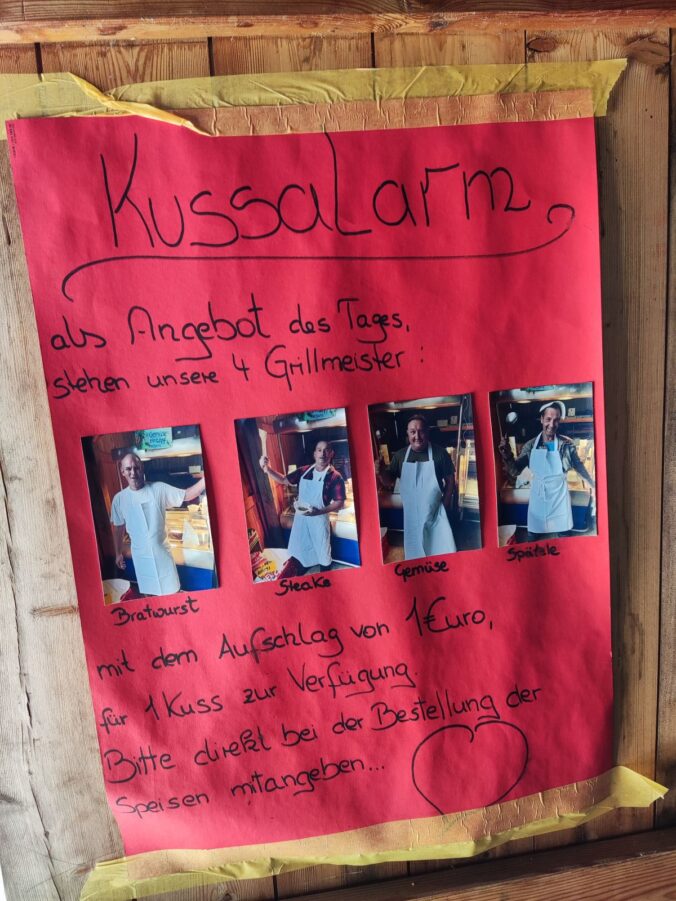 Kussalarm
als Angebot des Tages,
stehen unsere 4 Grillmeister:
Bratwurst
Steake
Gemüse
Spätzle
mit dem Aufschlag von 1€uro,
für 1 Kuss zur Verfügung.
Bitte direkt bei der Bestellung der
Speisen mitangeben...